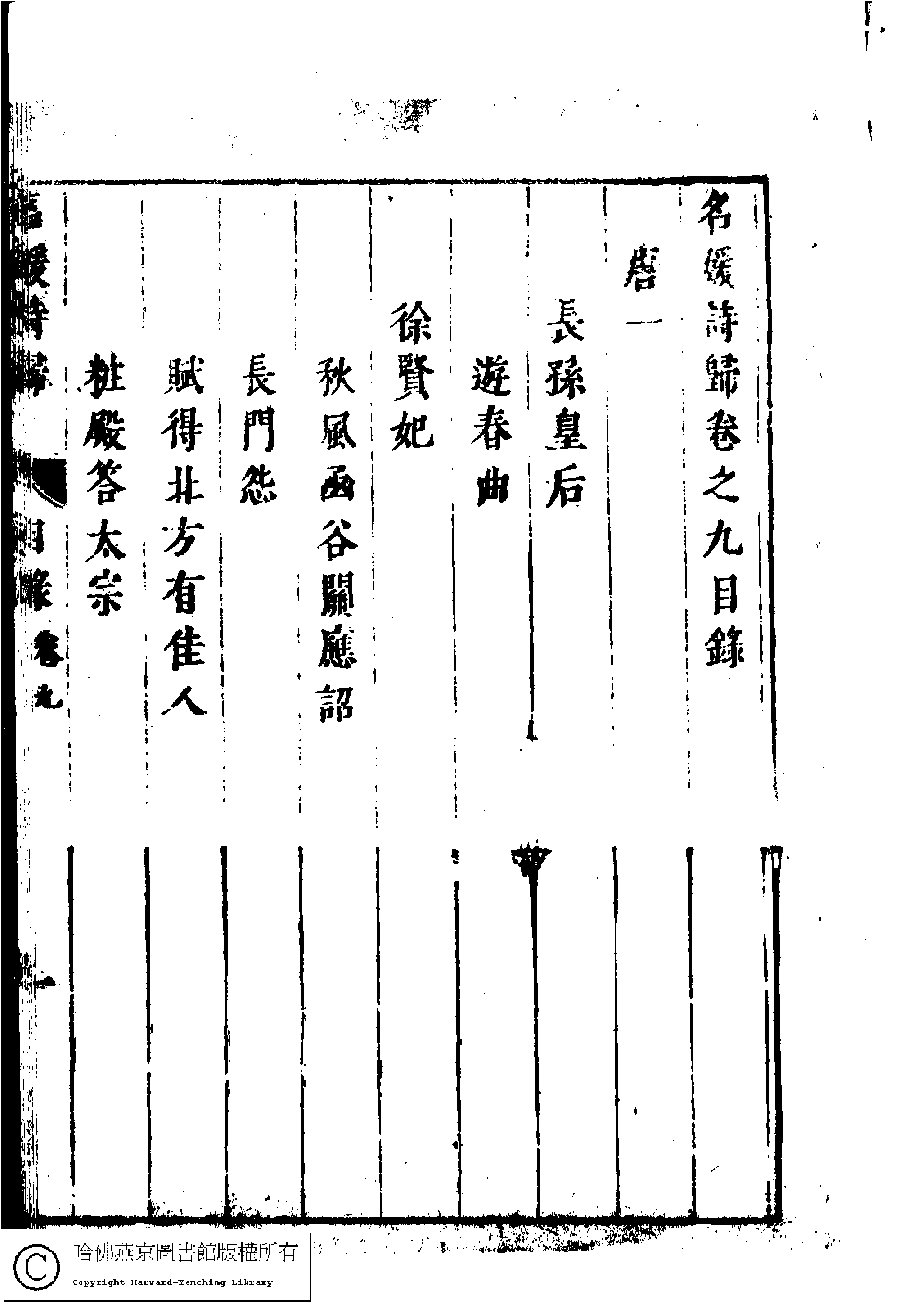 名媛詩歸卷之九目錄
唐一
長孫皇后
遊春曲
徐賢妃
秋風函谷關應詔
長門怨
賦得北方有佳人
粧殿答太宗
名媛詩歸
目錄
卷九
一
哈佛燕京圖書館版權所有
Copyright Harvard-Yenching Library